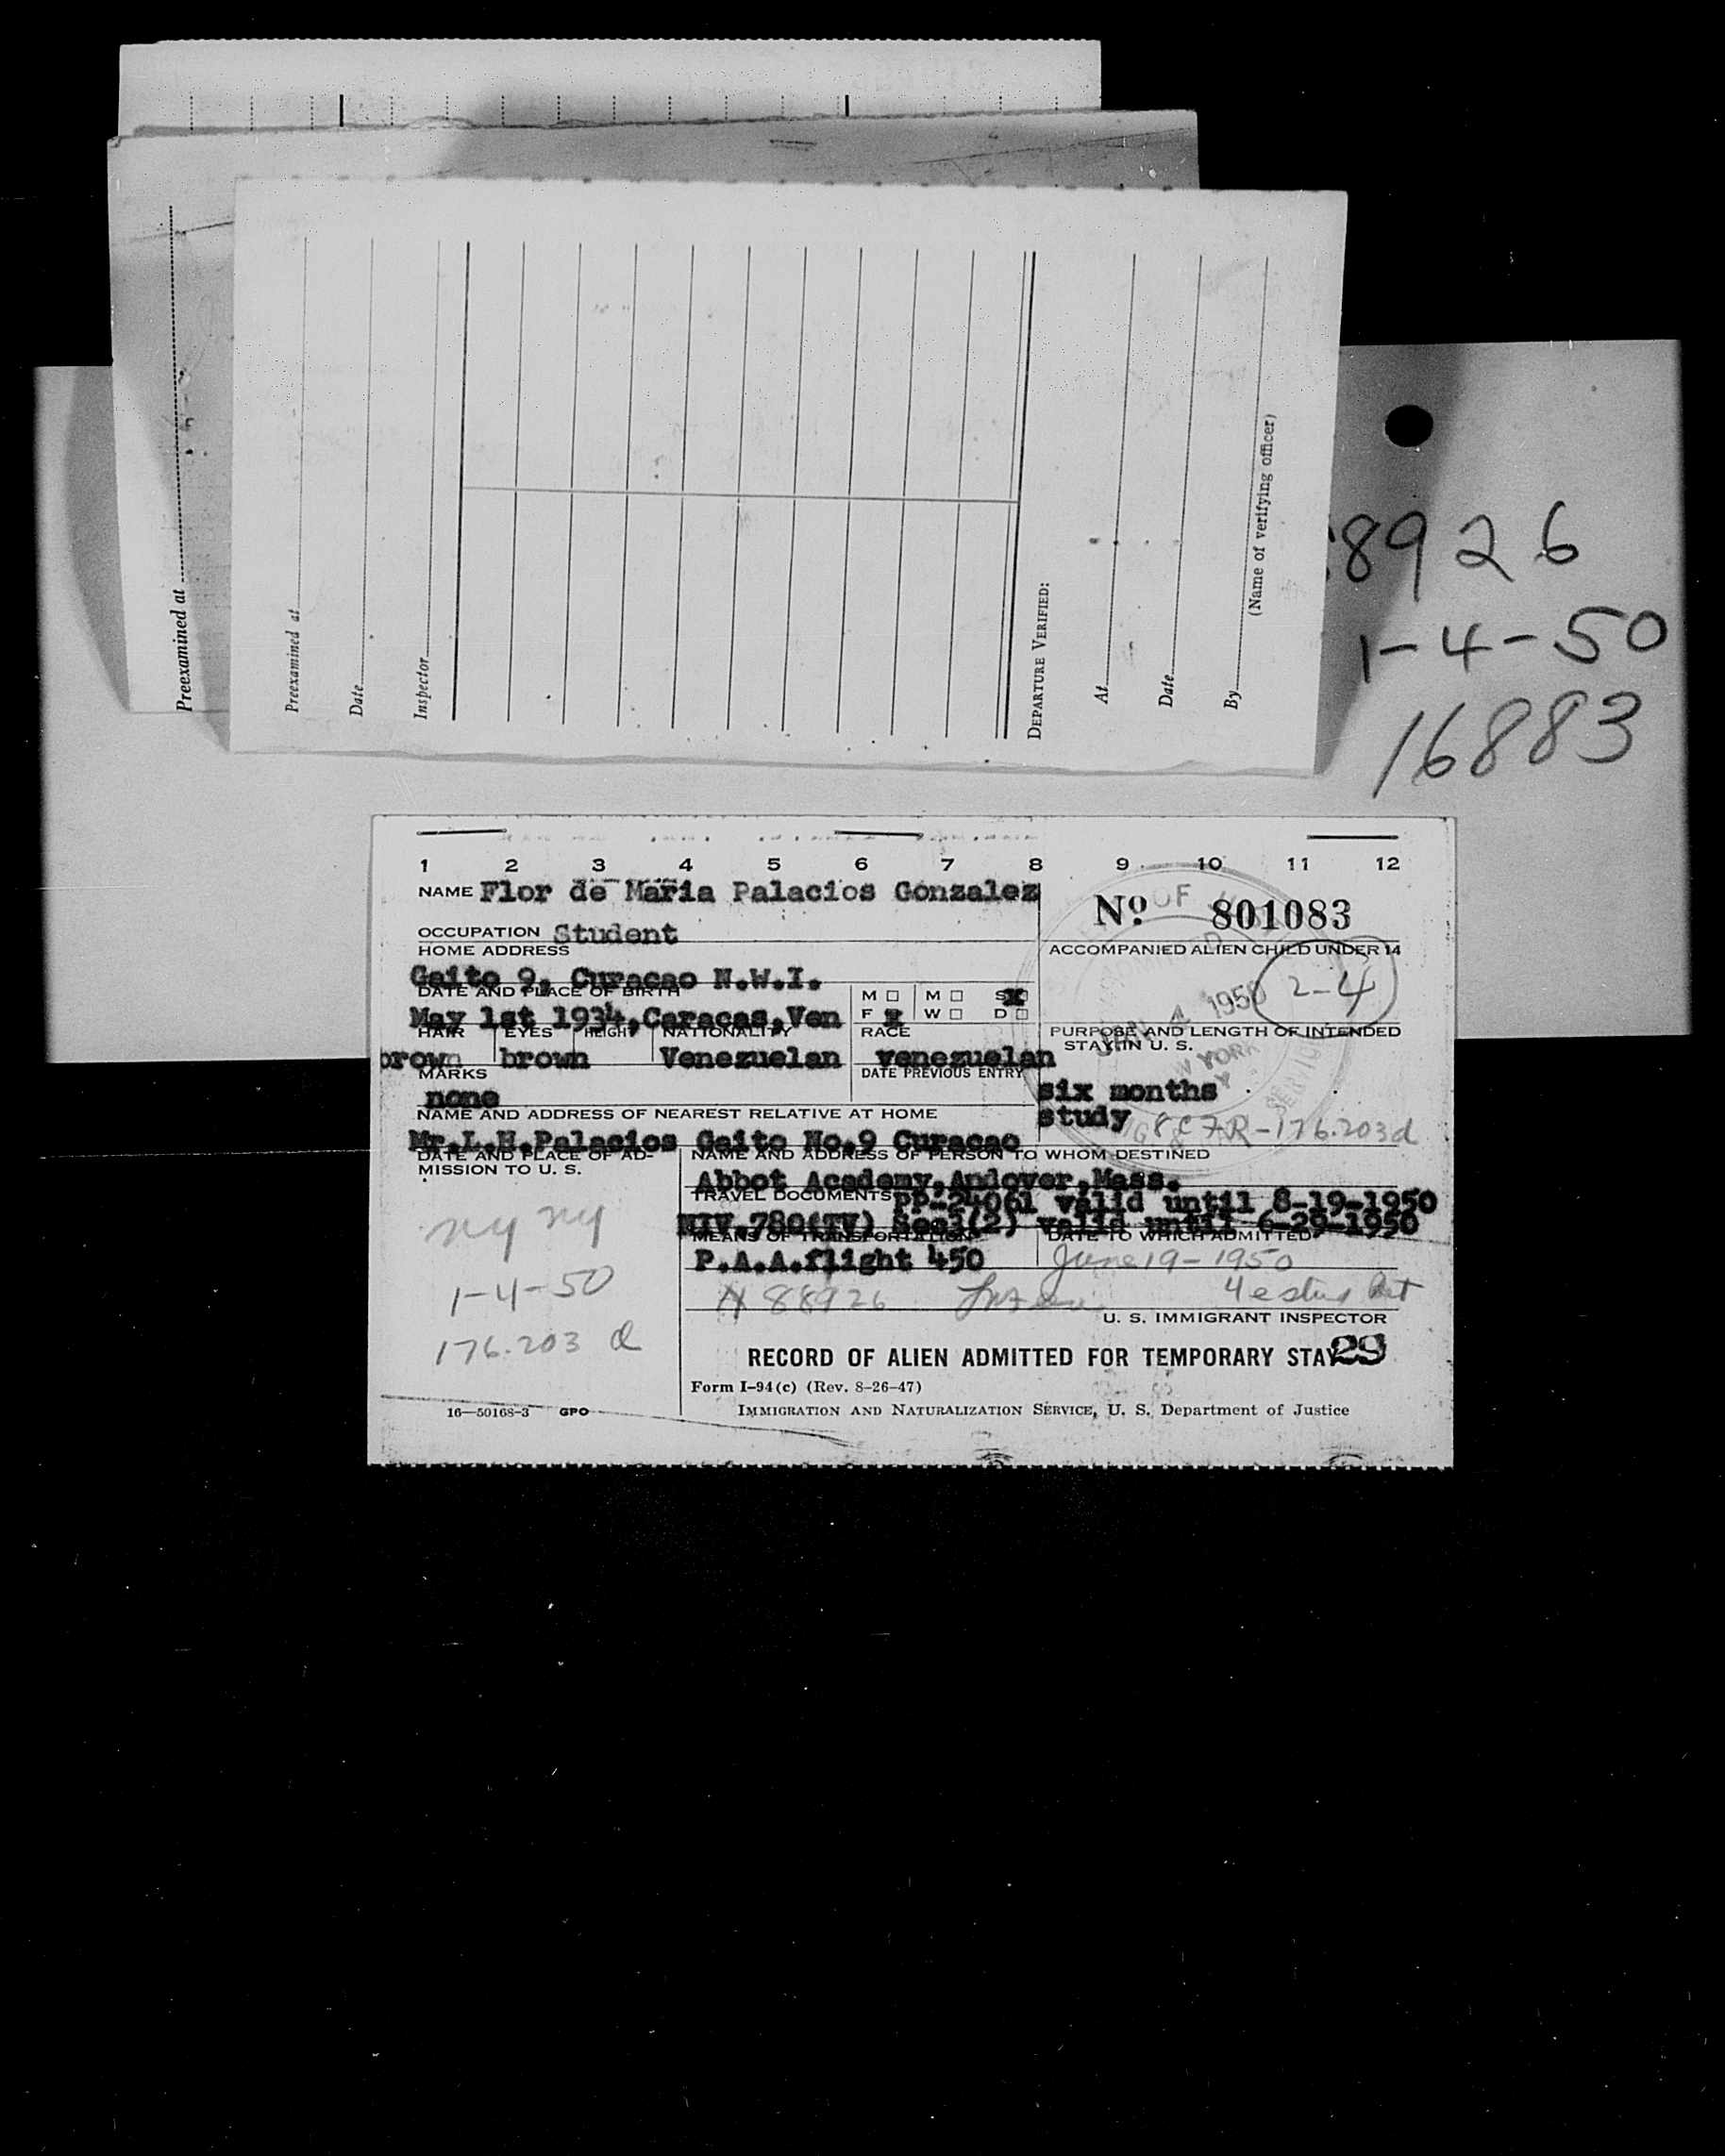 Preexamined at
Preexamined at
Date
Inspector
DEPARTURE VERIFIED:
At
Date
By
(Name of verifying officer)
8926
1-4-50
16883
1 2 3 4 5 6 7 8 9 10 11 12
NAME Flor de Maria Palacios Gonzalez
Nº 801083
OCCUPATION Student
HOME ADDRESS
ACCOMPANIED ALIEN CHILD UNDER 14
Gaito 9, Curacao N.W.I.
2-4
DATE AND PLACE OF BIRTH
M □ M □ S X
May 1st 1934, Caracas, Ven
F X W □ D □
1950
HAIR EYES HEIGHT NATIONALITY RACE
PURPOSE AND LENGTH OF INTENDED
STAY IN U. S.
brown brown Venezuelan venezuelan
MARKS
DATE PREVIOUS ENTRY
none
six months
NAME AND ADDRESS OF NEAREST RELATIVE AT HOME
study 8CFR-176.203d
Mr.L.H.Palacios Gaito No.9 Curacao
DATE AND PLACE OF AD-
MISSION TO U. S.
NAME AND ADDRESS OF PERSON TO WHOM DESTINED
Abbot Academy, Andover, Mass.
TRAVEL DOCUMENTS PP-24061 valid until 8-19-1950
NIV.780(TV) Sec3(2) valid until 6-29-1950
MEANS OF TRANSPORTATION
DATE TO WHICH ADMITTED
P.A.A.flight 450
June 19-1950
ny ny
1-4-50
176.203 d
88926
U. S. IMMIGRANT INSPECTOR
RECORD OF ALIEN ADMITTED FOR TEMPORARY STAY
29
Form I-94(c) (Rev. 8-26-47)
16—50168-3 GPO
IMMIGRATION AND NATURALIZATION SERVICE, U. S. Department of Justice